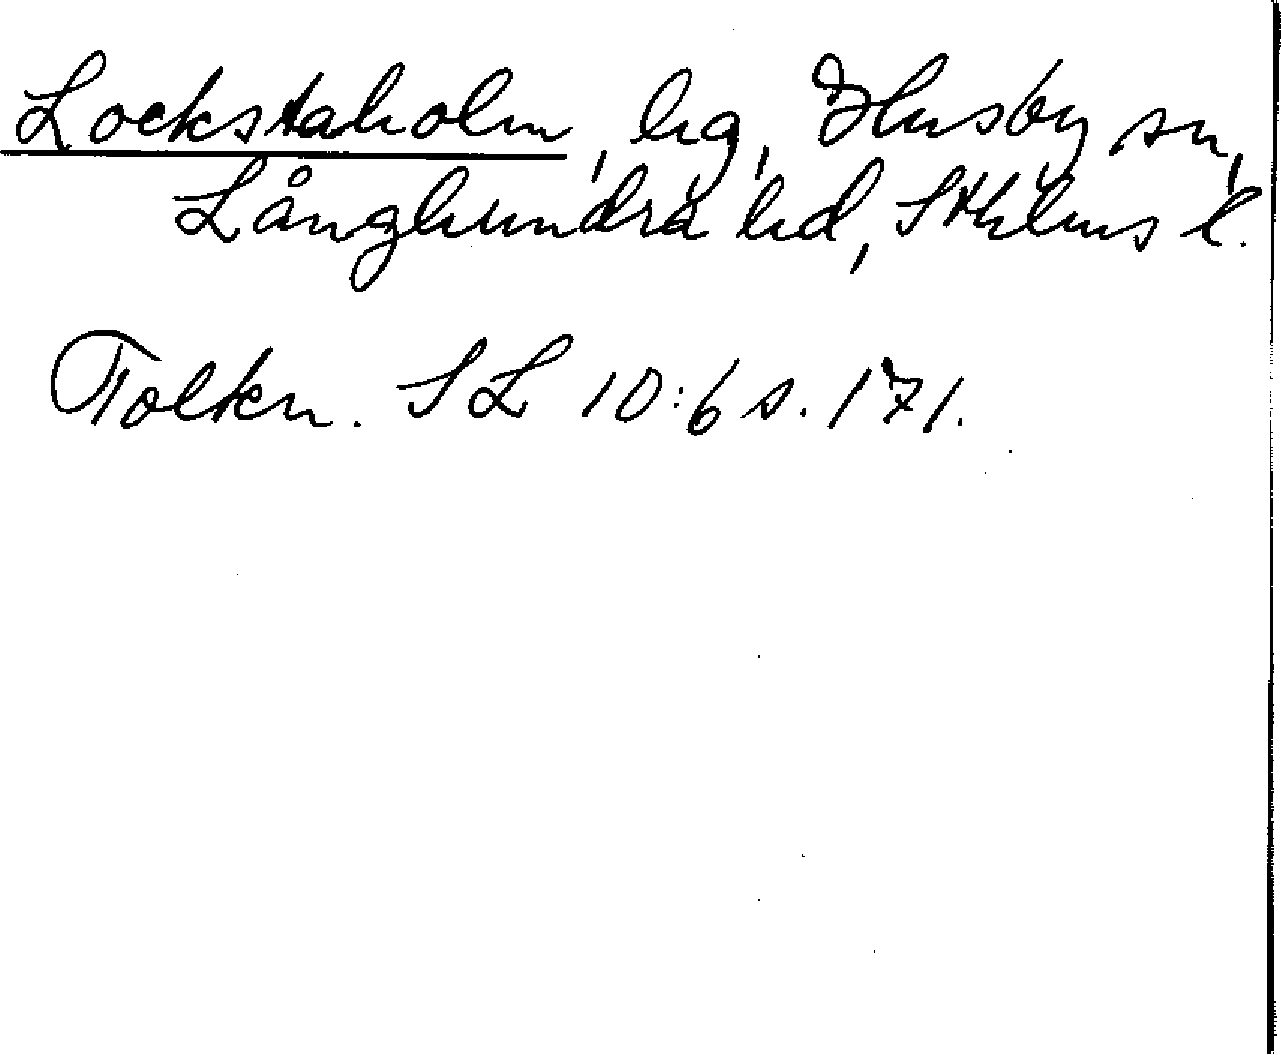 Lockstaholm, hg, Husby sn,
Långhundra hd, Sthlms l.
Tolkn. SL 10:6 s. 171.